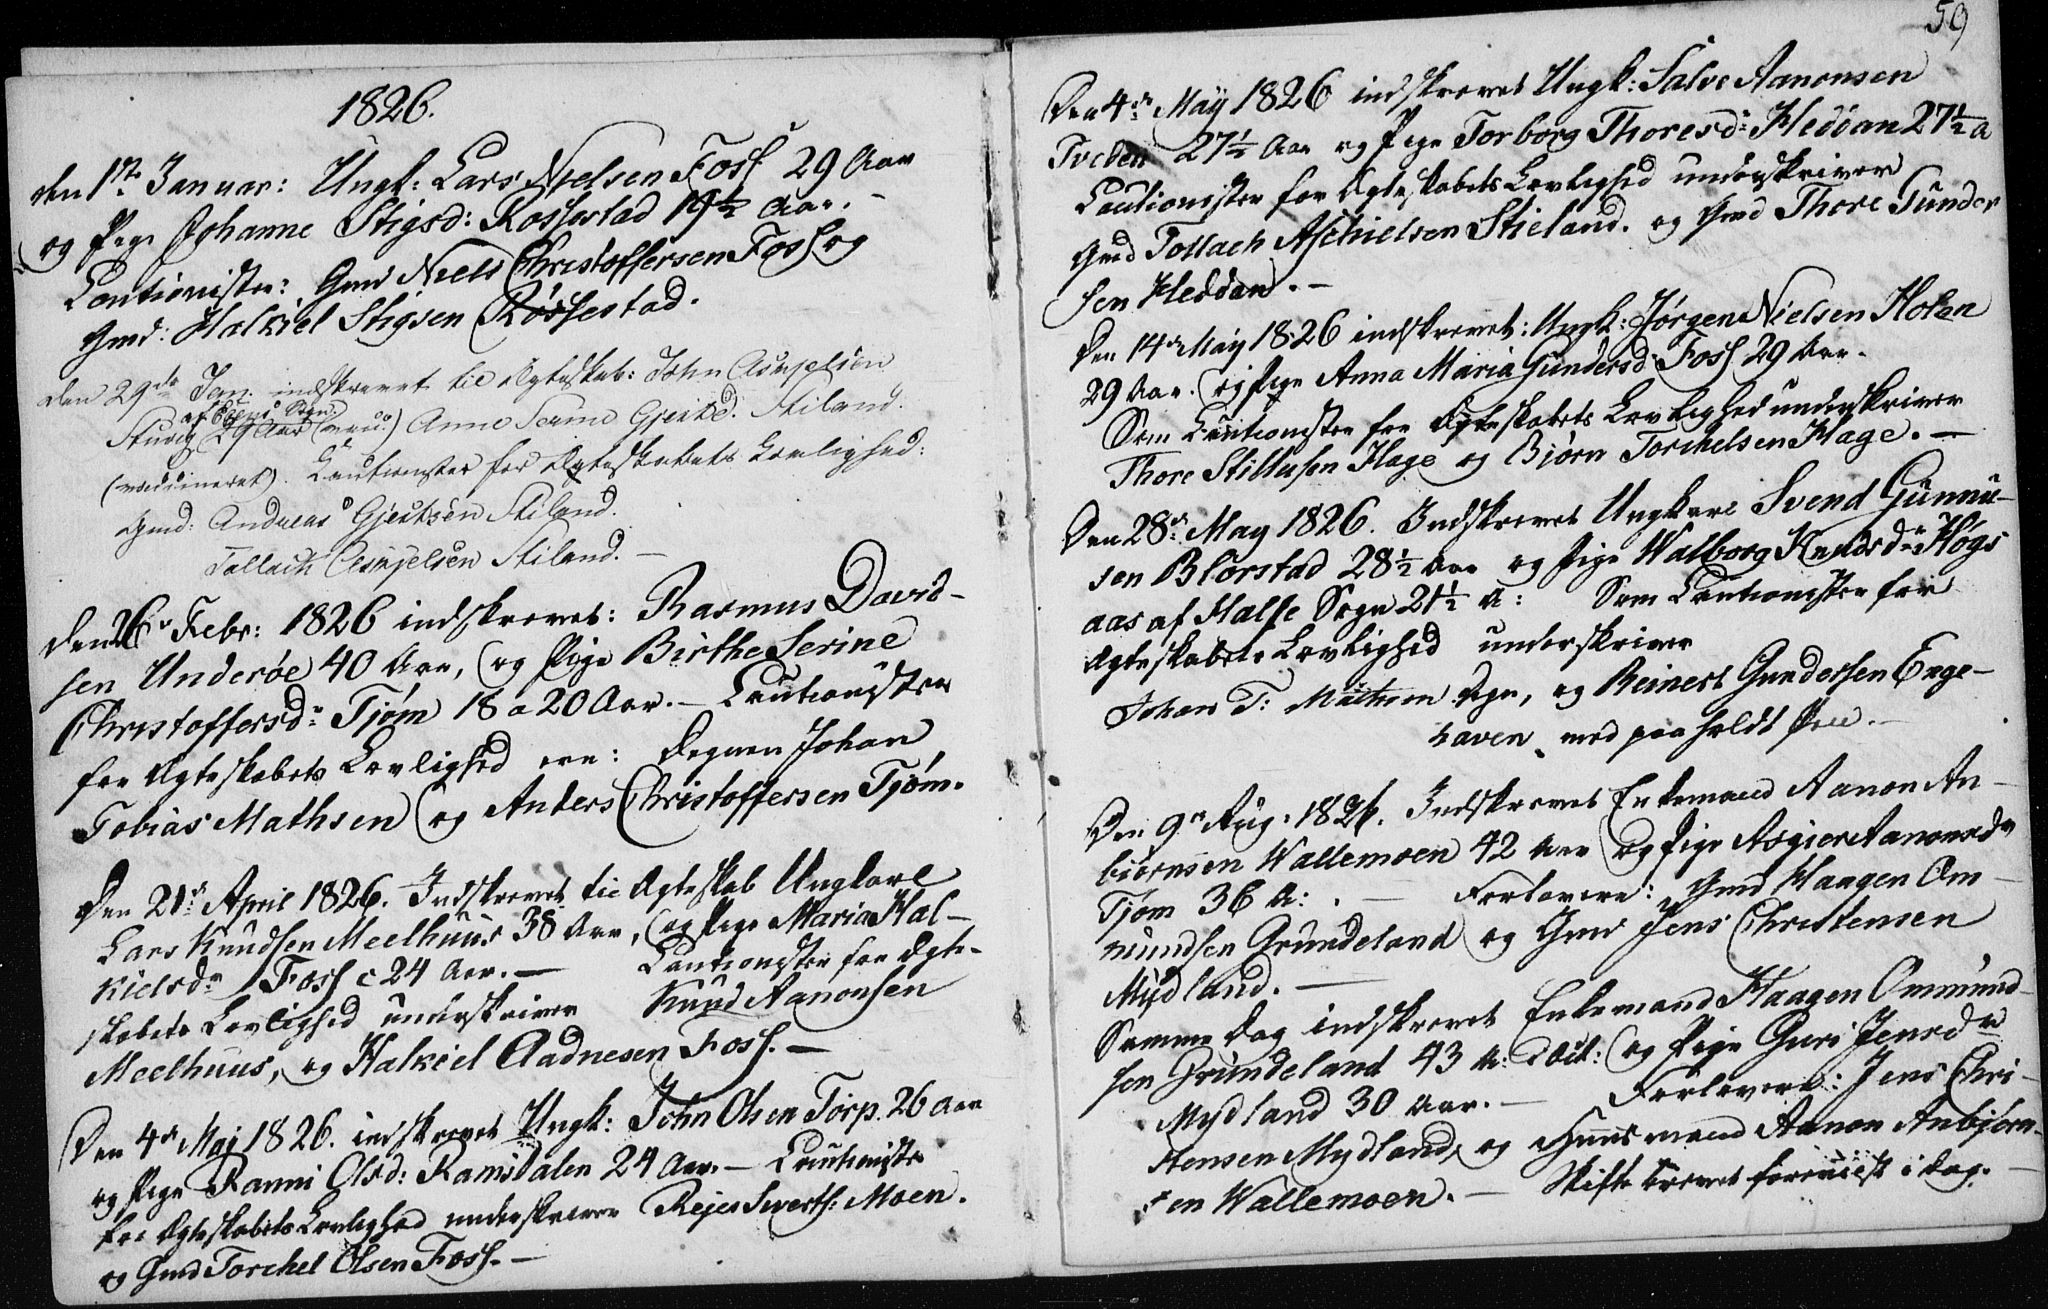 1826.
den 1ste Januar: Ungk: Lars Nielsen Foss 29 Aar
og Pige Johanne Stigsd: Rossestad 19½ Aar. -
Cautionister: Gmd Niels Christoffersen Foss og
Gmd: Halkiel Stigsen Røssestad.
den 29de Jan: indskrevet til Ægteskab: John Asmjelsen
af Sogn
29 Aar (vacc:) Anne Serine Gjertsd. Stiland.
(vaccineret). Cautionister for Ægteskabets Lovlighed:
Gmd: Andreas Gjertsen Stiland.
Tallach Asmjelsen Stiland. -
den 26 Febr: 1826 indskrevet: Rasmus David-
sen Underøe 40 Aar, og Pige Birthe Serine
Christoffersdr Tjøm 18 a 20 Aar. - Cautionister
for Ægteskabets Lovlighed ere: Degnen Johan
Tobias Mathsen og Anders Christoffersen Tjøm.
Den 21de April 1826. Indskrevet til Ægteskab Ungkarl
Lars Knudsen Meelhuus 38 Aar, og Pige Maria Hal-
kielsdr Foss c 24 Aar. - Cautionister for Ægte-
skabets Lovlighed underskriver Knud Aanonsen
Meelhuus, og Halkiel Aadnesen Foss. -
Den 4de Maj 1826. indskrevet Ungk: John Olsen Torp 26 Aar
og Pige Ranni Olsd: Ramsdalen 24 Aar. - Cautionister
for Ægteskabets Lovlighed underskriver Rejer Siverts: Moen.
og Gmd Torchel Olsen Foss. -
59
Den 4de May 1826 indskrevet Ungk: Salve Aanonsen
Tveden 27½ Aar og Pige Torborg Thoresdr Heddan 27½ a
Cautionister for Ægteskabets Lovlighed underskriver
Gmd Tollach Aschielsen Stieland. og Gmd Thore Gunder
sen Heddan. -
Den 14de May 1826 indskrevet: Ungk: Jørgen Nielsen Holen
29 Aar. og Pige Anna Maria Gundersd Foss 29 Aar.
Som Cautionister for Ægteskabets Lovlighed underskriver
Thore Stillufsen Hage og Bjørn Torchelsen Hage. -
Den 28de May 1826. Indskrevet Ungkarl Svend Gunnu-
sen Blorstad 28½ Aar og Pige Walborg Knudsdr Høgs
aas af Halse Sogn 21½ A: Som Cautionister for
Ægteskabets Lovlighed underskriver
Johan T: Mathsen Degn, og Reinert Gundersen Enge-
haven med paaholdt Pen. -
Den 9de Aug: 1826. Indskrevet Enkemand Aanon An-
biørnsen Wallemoen 42 Aar og Pige Asgier Aanonsdr
Tjøm 36 A: . - Forlovere: Gmd Haagen Om-
mundsen Grundeland og Gmd Jens Christensen
Mydland. -
Samme Dag indskrevet Enkemand Haagen Ommund-
sen Grundeland 43 A: og Pige Guri Jensdr
Mydland 30 Aar. - Forlovere: Jens Chri-
stensen Mydland, og Huusmand Aanon Anbjørn-
sen Wallemoen. - Skifte foreviist i Dag. -